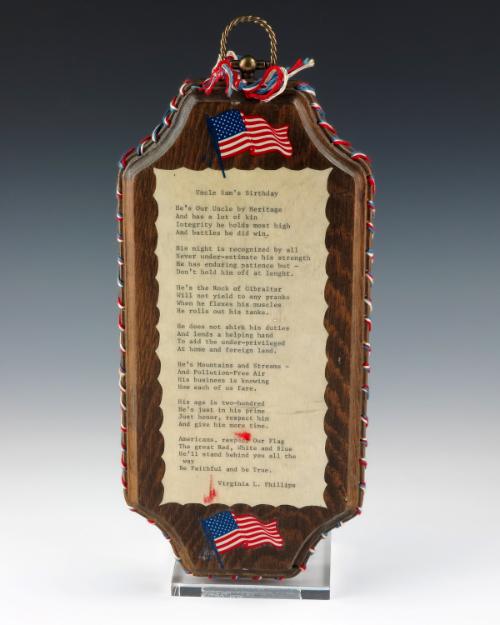 Uncle Sam's Birthday
He's Our Uncle by Heritage
And has a lot of kin
Integrity he holds most high
And battles he did win.
His might is recognized by all
Never under-estimate his strength
He has enduring patience but -
Don't hold him off at lenght.
He's the Rock of Gibraltar
Will not yield to any pranks
When he flexes his muscles
He rolls out his tanks.
He does not shirk his duties
And lends a helping hand
To add the under-privileged
At home and foreign land.
He's Mountains and Streams -
And Pollution-Free Air
His business is knowing
How each of us fare.
His age is two-hundred
He's just in his prime
Just honor, respect him
And give him more time.
Americans, respect Our Flag
The great Red, White and Blue
He'll stand behind you all the
way
Be Faithful and be True.
Virginia L. Phillips